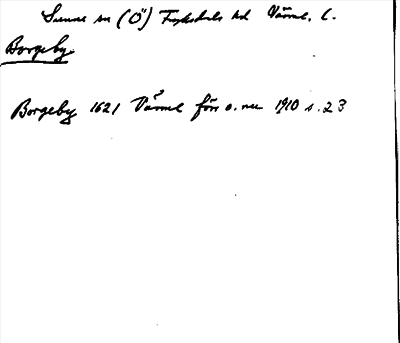 Sunne sn (Ö) Fryksdals hd Värml. l.
Borgeby
Borgeby 1621 Värml förr o. nu 1910 s. 23